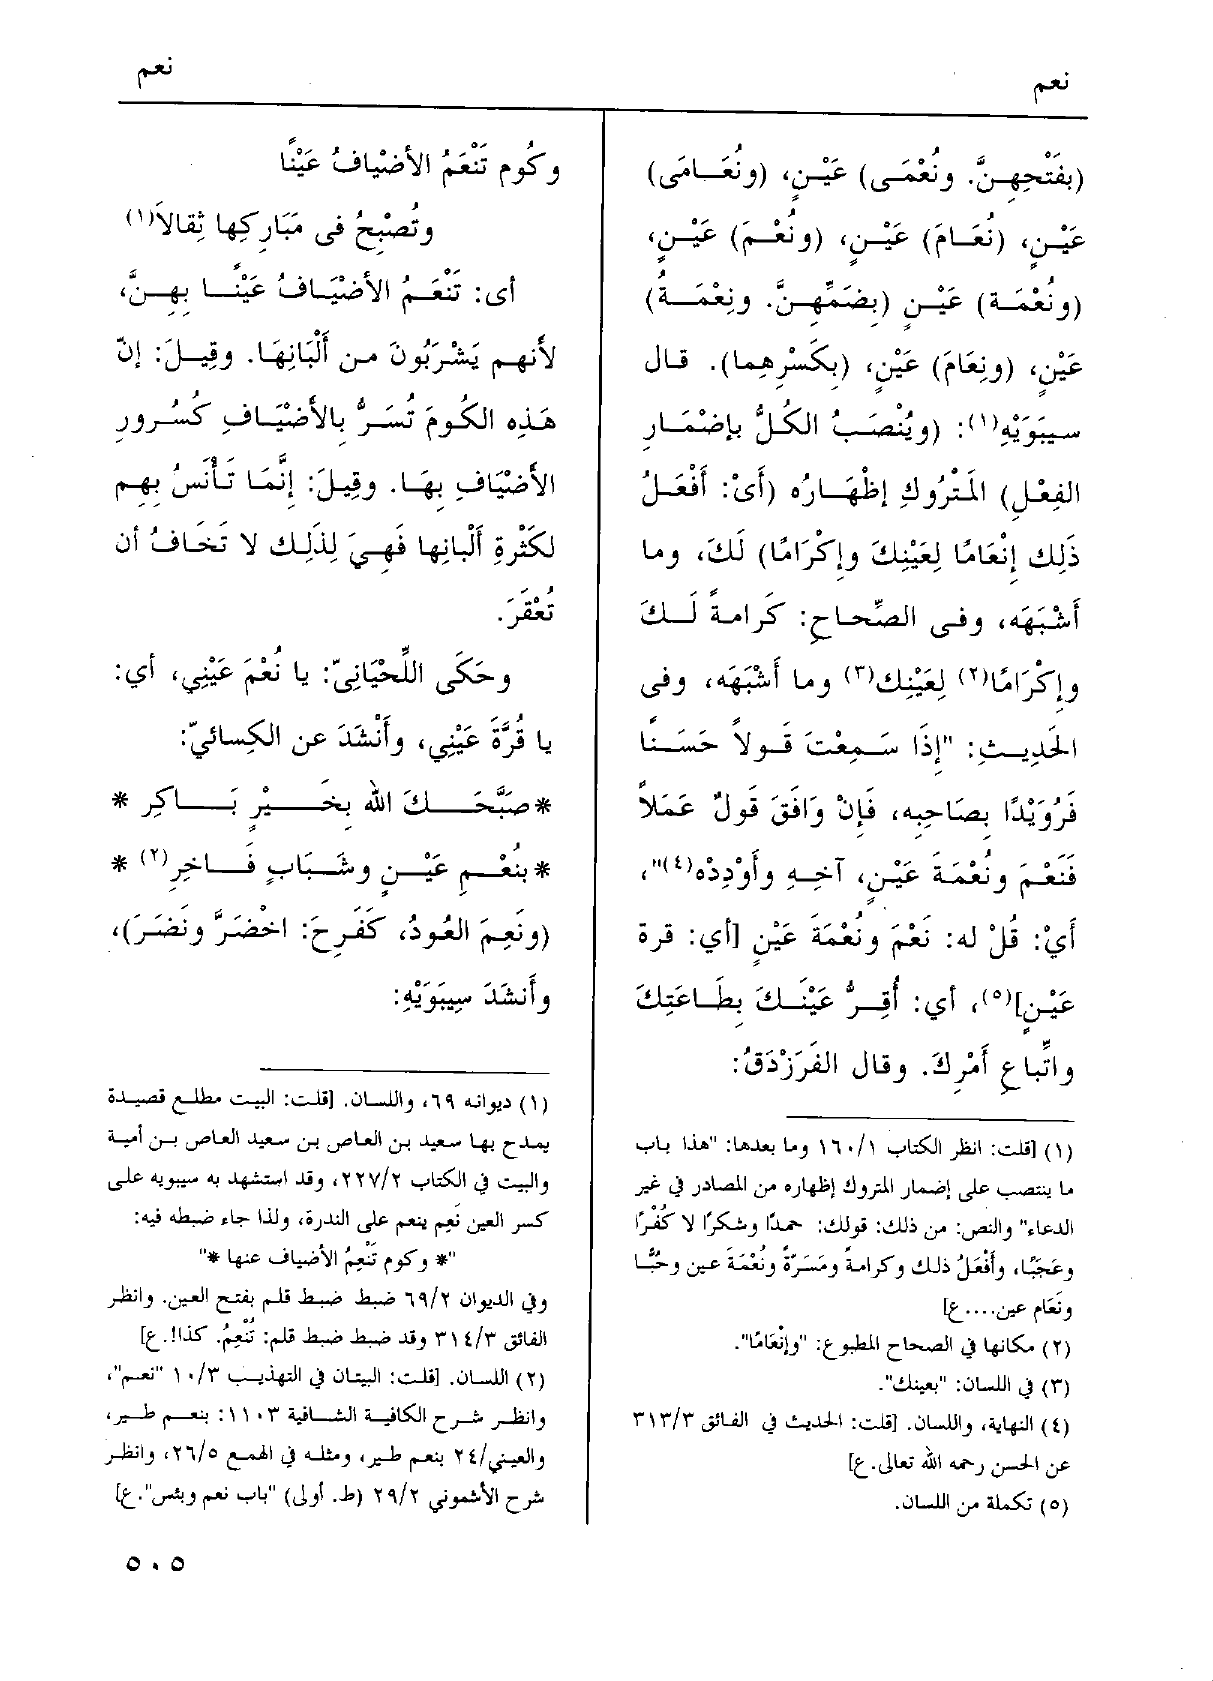 نعم
(بِفَتْحِهِنَّ. ونُعْمَى) عَيْنٍ، (ونُعَامَى)
عَيْنٍ، (نُعَامَ) عَيْنٍ، (ونُعْمَ) عَيْنٍ،
(ونُعْمَةَ) عَيْنٍ (بِضَمِّهِنَّ. ونِعْمَةَ)
عَيْنٍ، (ونِعَامَ) عَيْنٍ، (بِكَسْرِهِما). قال
سِيبَوَيْهِ(١): (ويُنْصَبُ الكُلُّ بإِضْمَارِ
الفِعْلِ) المَتْرُوكِ إظْهَارُه (أَىْ: أَفْعَلُ
ذَلِك إِنْعَامًا لِعَيْنِكَ وإِكْرَامًا) لَكَ، وما
أَشْبَهَه، وفى الصِّحاحِ: كَرامةً لَكَ
وإِكْرَامًا(٢) لِعَيْنِك(٣) وما أَشْبَهَه، وفى
الحَدِيثِ: "إِذَا سَمِعْتَ قَولاً حَسَنًا
فَرُوَيْدًا بِصَاحِبِه، فَإِنْ وَافَقَ قَولٌ عَمَلاً
فَنَعْمَ ونُعْمَةَ عَيْنٍ، آخِهِ وأَوْدِدْه(٤)"،
أَىْ: قُلْ له: نَعْمَ ونُعْمَةَ عَيْنٍ [أي: قرة
عَيْنٍ](٥)، أي: أُقِرُّ عَيْنَكَ بِطَاعَتِكَ
واتِّباعِ أَمْرِكَ. وقال الفَرَزْدَقُ:
(١) [قلت: انظر الكتاب ١/١٦٠ وما بعدها: "هذا باب
ما ينتصب على إضمار المتروك إظهاره من المصادر في غير
الدعاء" والنص: من ذلك: قولك: حمدًا وشكرًا لا كُفْرًا
وعَجَبًا، وأَفْعَلُ ذلك وكرامةً ومَسَرَّةً ونُعْمَةَ عين وحُبًّا
ونَعَام عين....ع]
(٢) مكانها في الصحاح المطبوع: "وإِنْعَامًا".
(٣) في اللسان: "بعينك".
(٤) النهاية، واللسان. [قلت: الحديث في الفائق ٣١٣/٣
عن الحسن رحمه الله تعالى.ع]
(٥) تكملة من اللسان.
نعم
وكُوم تَنْعَمُ الأَضْيافُ عَيْنًا
وتُصْبِحُ فى مَبَارِكِها ثِقالاَ(١)
أى: تَنْعَمُ الأَضْيَافُ عَيْنًا بِهِنَّ،
لأنهم يَشْرَبُونَ من أَلْبَانِهَا. وقِيلَ: إنّ
هَذِه الكُومَ تُسَرُّ بالأَضْيَافِ كُسُرورِ
الأَضْيَافِ بِهَا. وقِيلَ: إنَّمَا تَأْنَسُ بِهِم
لكَثْرةِ أَلْبانِها فَهِيَ لِذَلِك لا تَخَافُ أن
تُعْقَرَ.
وحَكَى اللِّحْيَانِىّ: يا نُعْمَ عَيْنِي، أي:
يا قُرَّةَ عَيْنِي، وأَنْشَدَ عن الكِسائيّ:
*صَبَّحَكَ اللهُ بِخَيْرٍ بَاكِرِ *
*بنُعْمِ عَيْنٍ وشَبَابٍ فَاخِرِ(٢) *
(ونَعِمَ العُودُ، كَفَرِحَ: اخْضَرَّ ونَضَرَ)،
وأَنشَدَ سِيبَوَيْهِ:
(١) ديوانه ٦٩، واللسان. [قلت: البيت مطلع قصيدة
يمدح بها سعيد بن العاص بن سعيد العاص بن أمية
والبيت في الكتاب ٢٢٧/٢، وقد استشهد به سيبويه على
كسر العين نَعِم ينعم على الندرة، ولذا جاء ضبطه فيه:
"* وكوم تَنْعِمُ الأضياف عنها *"
وفي الديوان ٦٩/٢ ضبط ضبط قلم بفتح العين. وانظر
الفائق ٣١٤/٣ وقد ضبط ضبط قلم: تُنْعِمُ. كذا!.ع]
(٢) اللسان. [قلت: البيتان في التهذيب ١٠/٣ "نعم"،
وانظر شرح الكافية الشافية ١١٠٣: بنعم طير،
والعيني/٢٤ بنعم طير، ومثله في الهمع ٢٦/٥، وانظر
شرح الأشموني ٢٩/٢ (ط. أولى) "باب نعم وبئس".ع]
٥٠٥